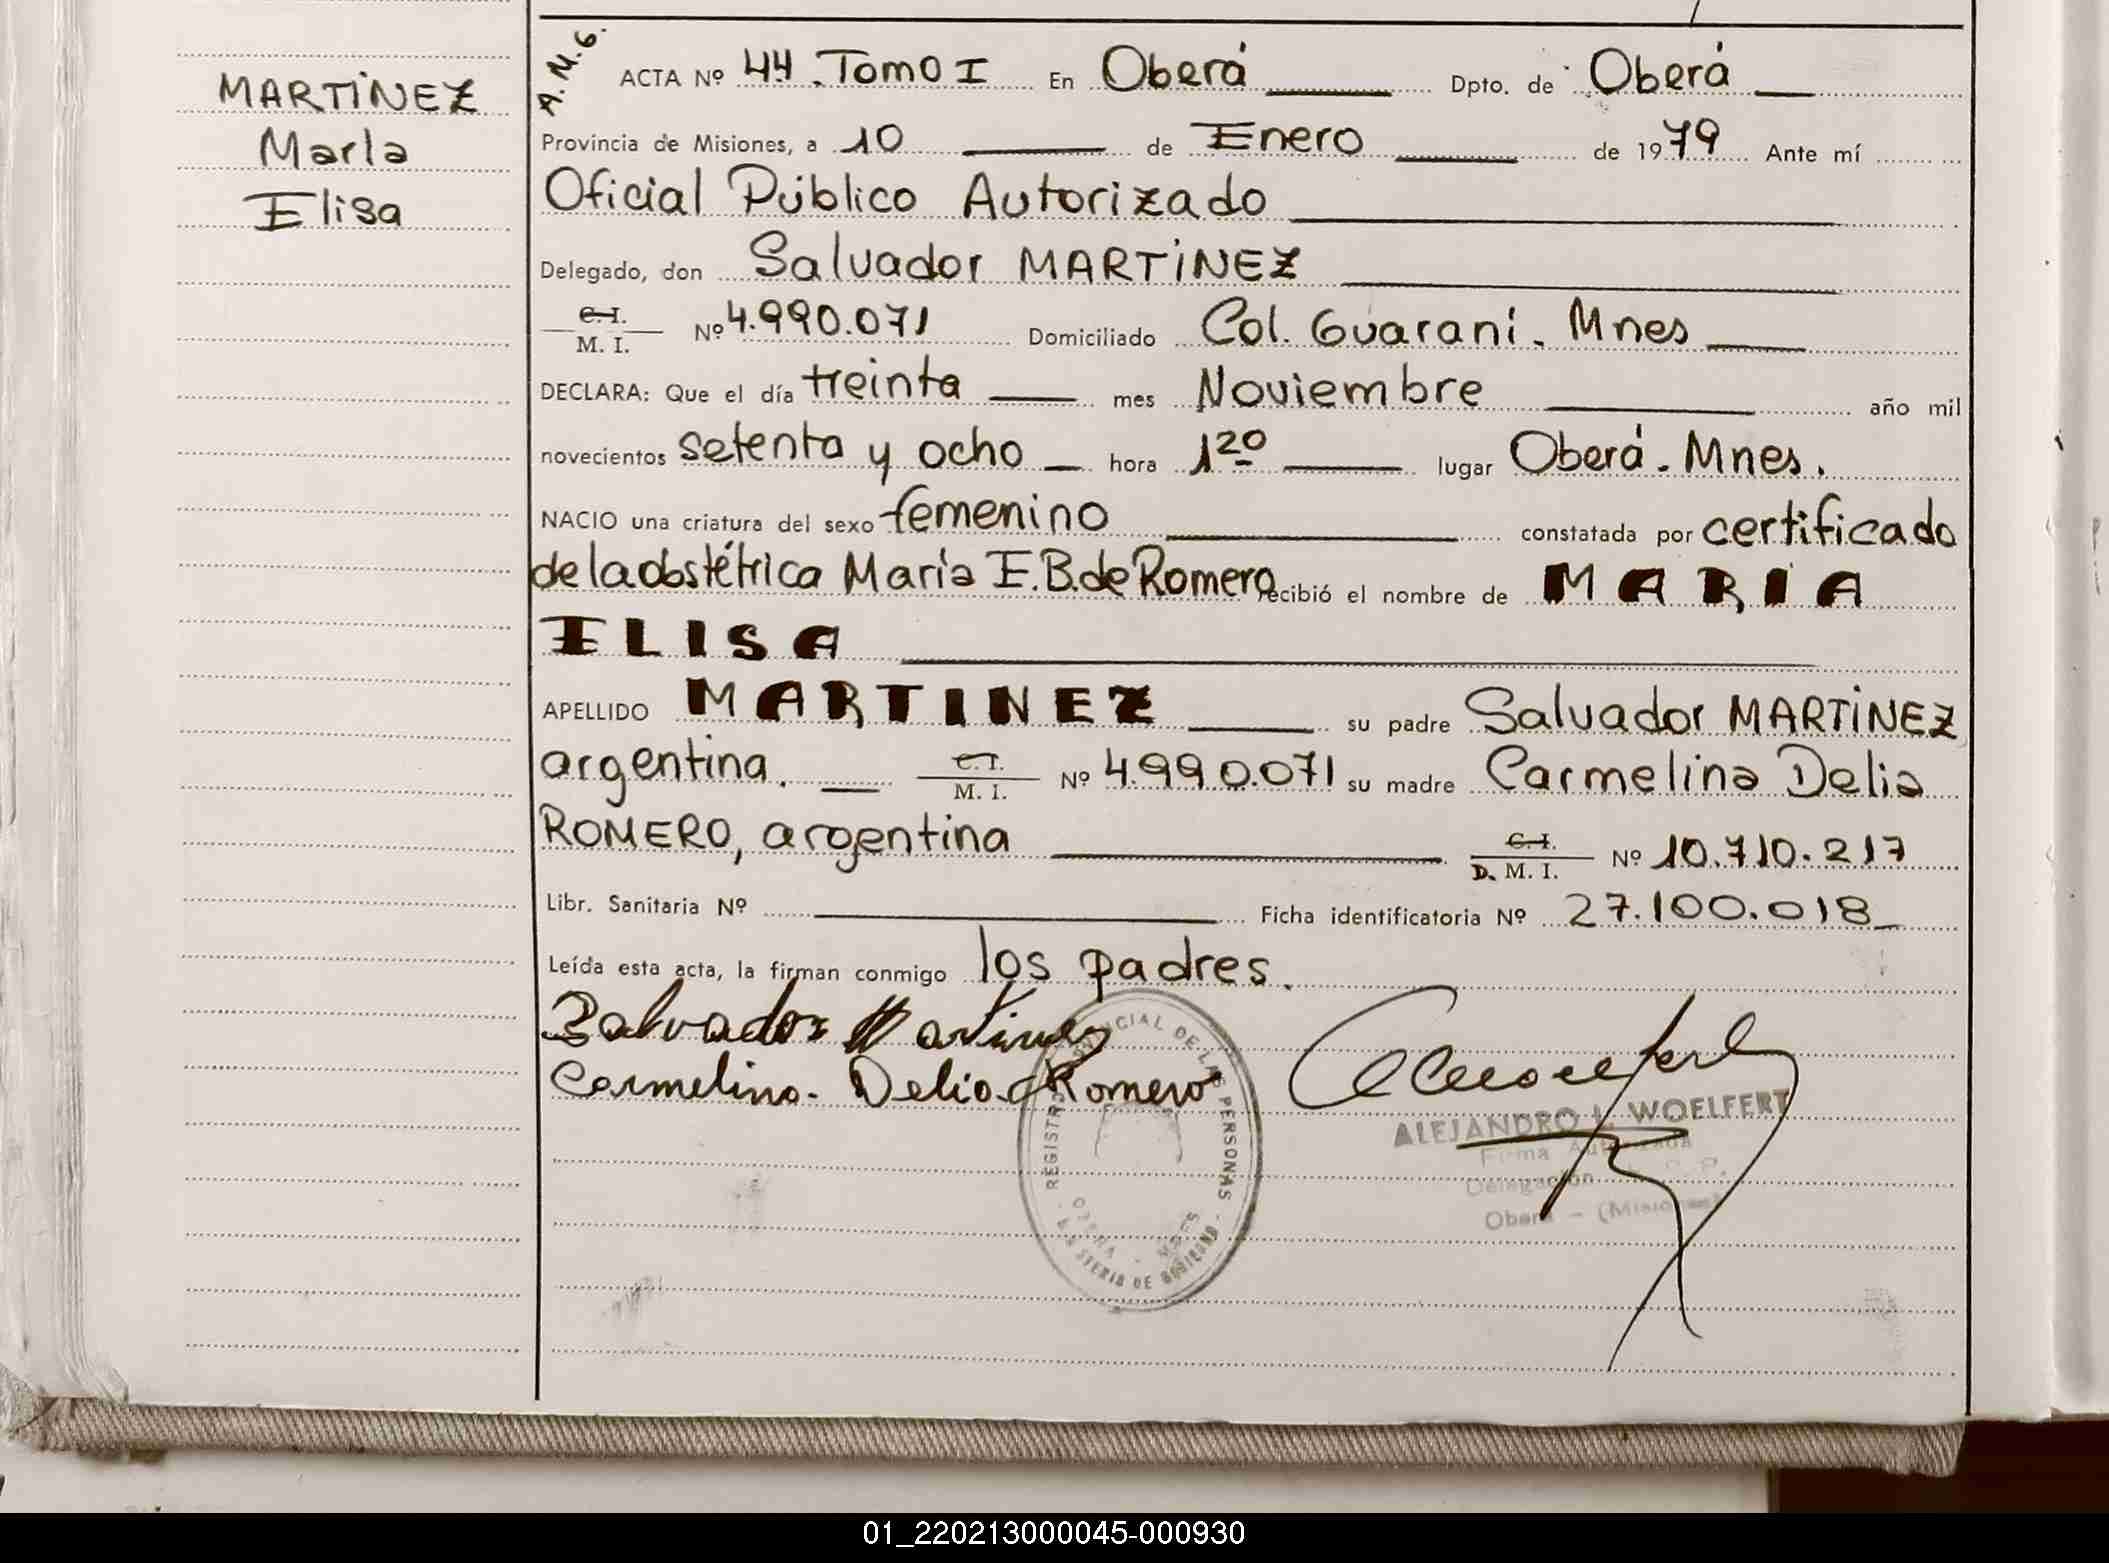 MARTINEZ
María
Elisa
A. M. G.
ACTA Nº 44. Tomo I En Oberá Dpto. de Oberá
Provincia de Misiones, a 10 de Enero de 1979 Ante mí
Oficial Público Autorizado
Delegado, don Salvador MARTINEZ
C. I.
M. I. Nº 4.990.071 Domiciliado Col. Guaraní. Mnes
DECLARA: Que el día treinta mes Noviembre año mil
novecientos setenta y ocho hora 1²⁰ lugar Oberá. Mnes.
NACIO una criatura del sexo femenino constatada por certificado
de la obstétrica María E. B. de Romero recibió el nombre de MARIA
ELISA
APELLIDO MARTINEZ su padre Salvador MARTINEZ
argentina. C. I. M. I. Nº 4.990.071 su madre Carmelina Delia
ROMERO, argentina C. I. D. M. I. Nº 10.710.217
Libr. Sanitaria Nº Ficha identificatoria Nº 27.100.018
Leída esta acta, la firman conmigo los padres.
Salvador Martinez
Carmelina Delia Romero
REGISTRO PROVINCIAL DE LAS PERSONAS
OBERA - MNES
DE GOBIERNO
ALEJANDRO L. WOELFERT
Firma Autorizada
Delegación R. P.
Oberá - (Misiones)
01_220213000045-000930